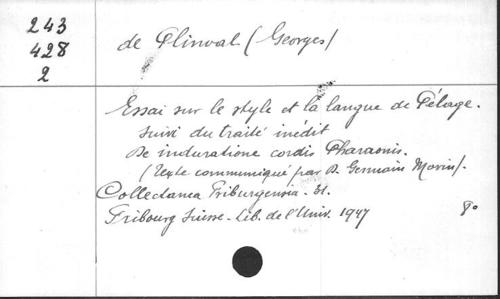 243
428
2
de Plinval (Georges)
Essai sur le style et la langue de Pélage.
suivi du traité inédit
De induratione cordis Pharaonis.
(Texte communiqué par D. Germain Morin).
Collectanea Friburgensia. 31.
Fribourg Suisse. Lib. de l'Univ. 1947 8º